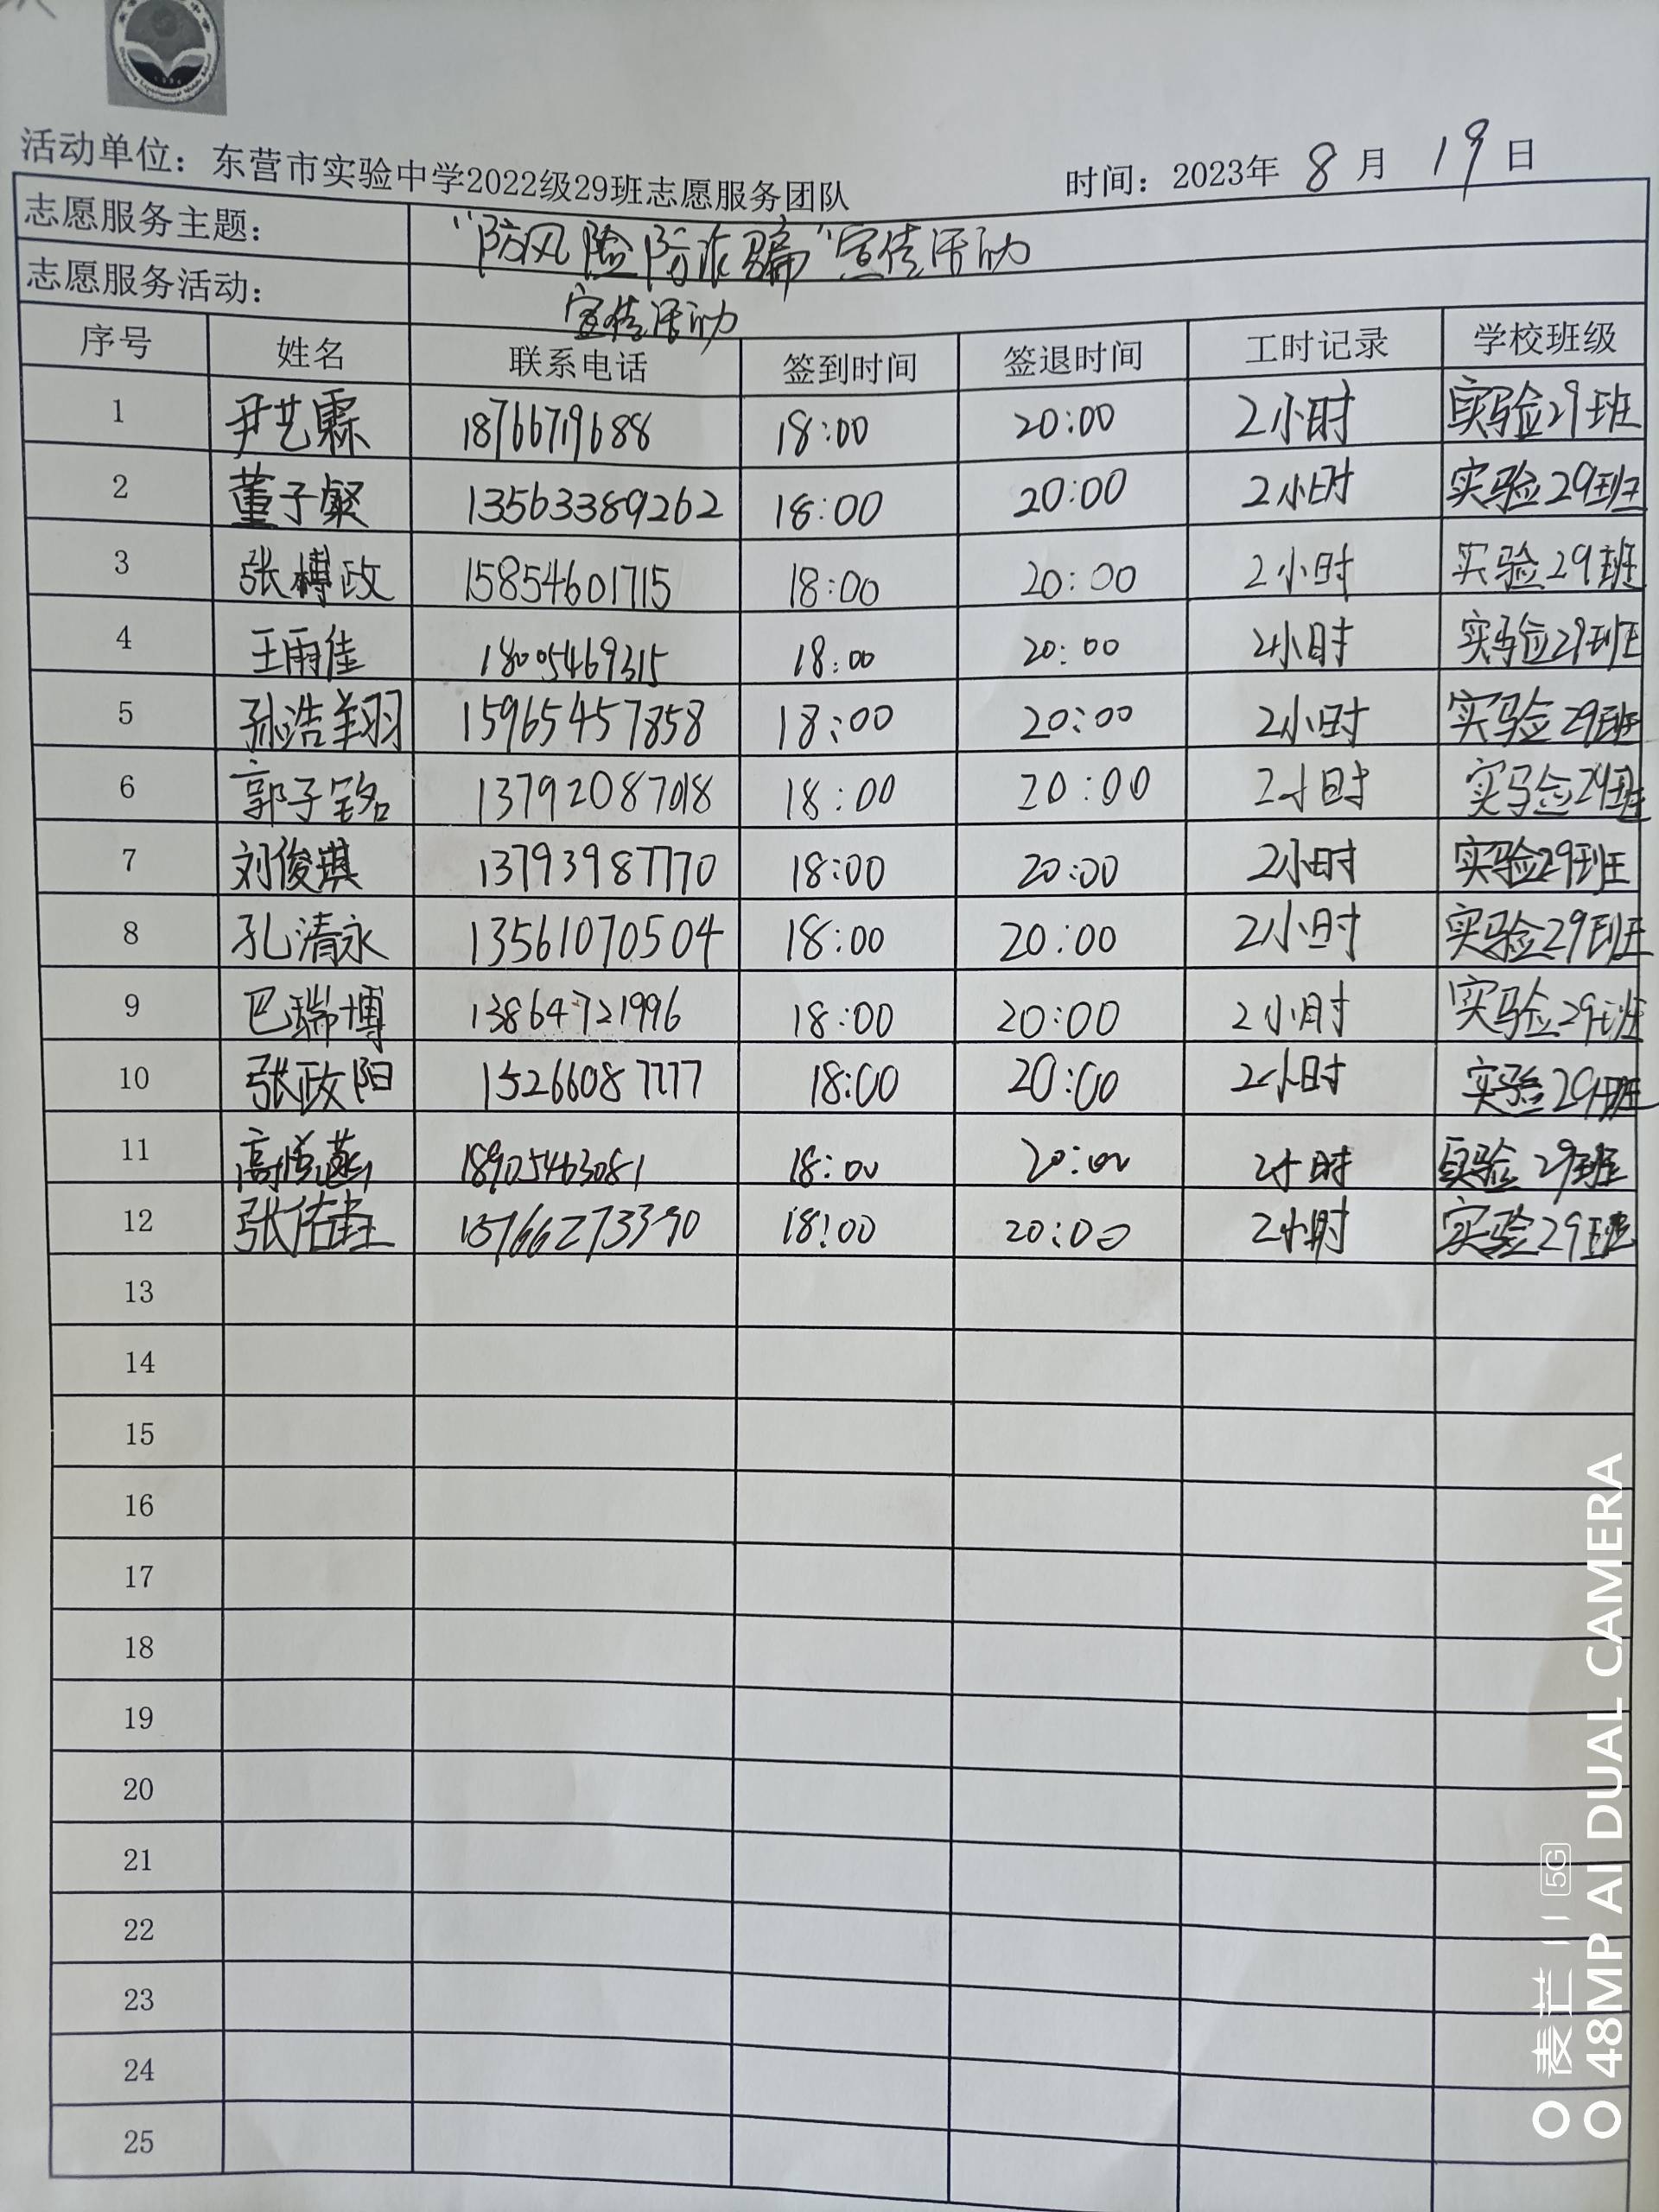 活动单位：东营市实验中学2022级29班志愿服务团队 时间：2023年 8 月 19 日
志愿服务主题： "防风险防诈骗"宣传活动
志愿服务活动： 宣传活动
序号 姓名 联系电话 签到时间 签退时间 工时记录 学校班级
1 尹艺霖 18766719688 18:00 20:00 2小时 实验29班
2 董子粲 13563389262 18:00 20:00 2小时 实验29班
3 张博政 15854601715 18:00 20:00 2小时 实验29班
4 王雨佳 18005469315 18:00 20:00 2小时 实验29班
5 孙浩翔 15965457858 18:00 20:00 2小时 实验29班
6 郭子铭 13792087018 18:00 20:00 2小时 实验29班
7 刘俊琪 13793987770 18:00 20:00 2小时 实验29班
8 孔清永 13561070504 18:00 20:00 2小时 实验29班
9 巴瑞博 13864721996 18:00 20:00 2小时 实验29班
10 张政阳 15266087777 18:00 20:00 2小时 实验29班
11 高悦涵 18905463081 18:00 20:00 2小时 实验29班
12 张佑 18:00 20:00 2小时 实验29班
13
14
15
16
17
18
19
20
21
22
23
24
25
麦芒 11 5G
48MP AI DUAL CAMERA